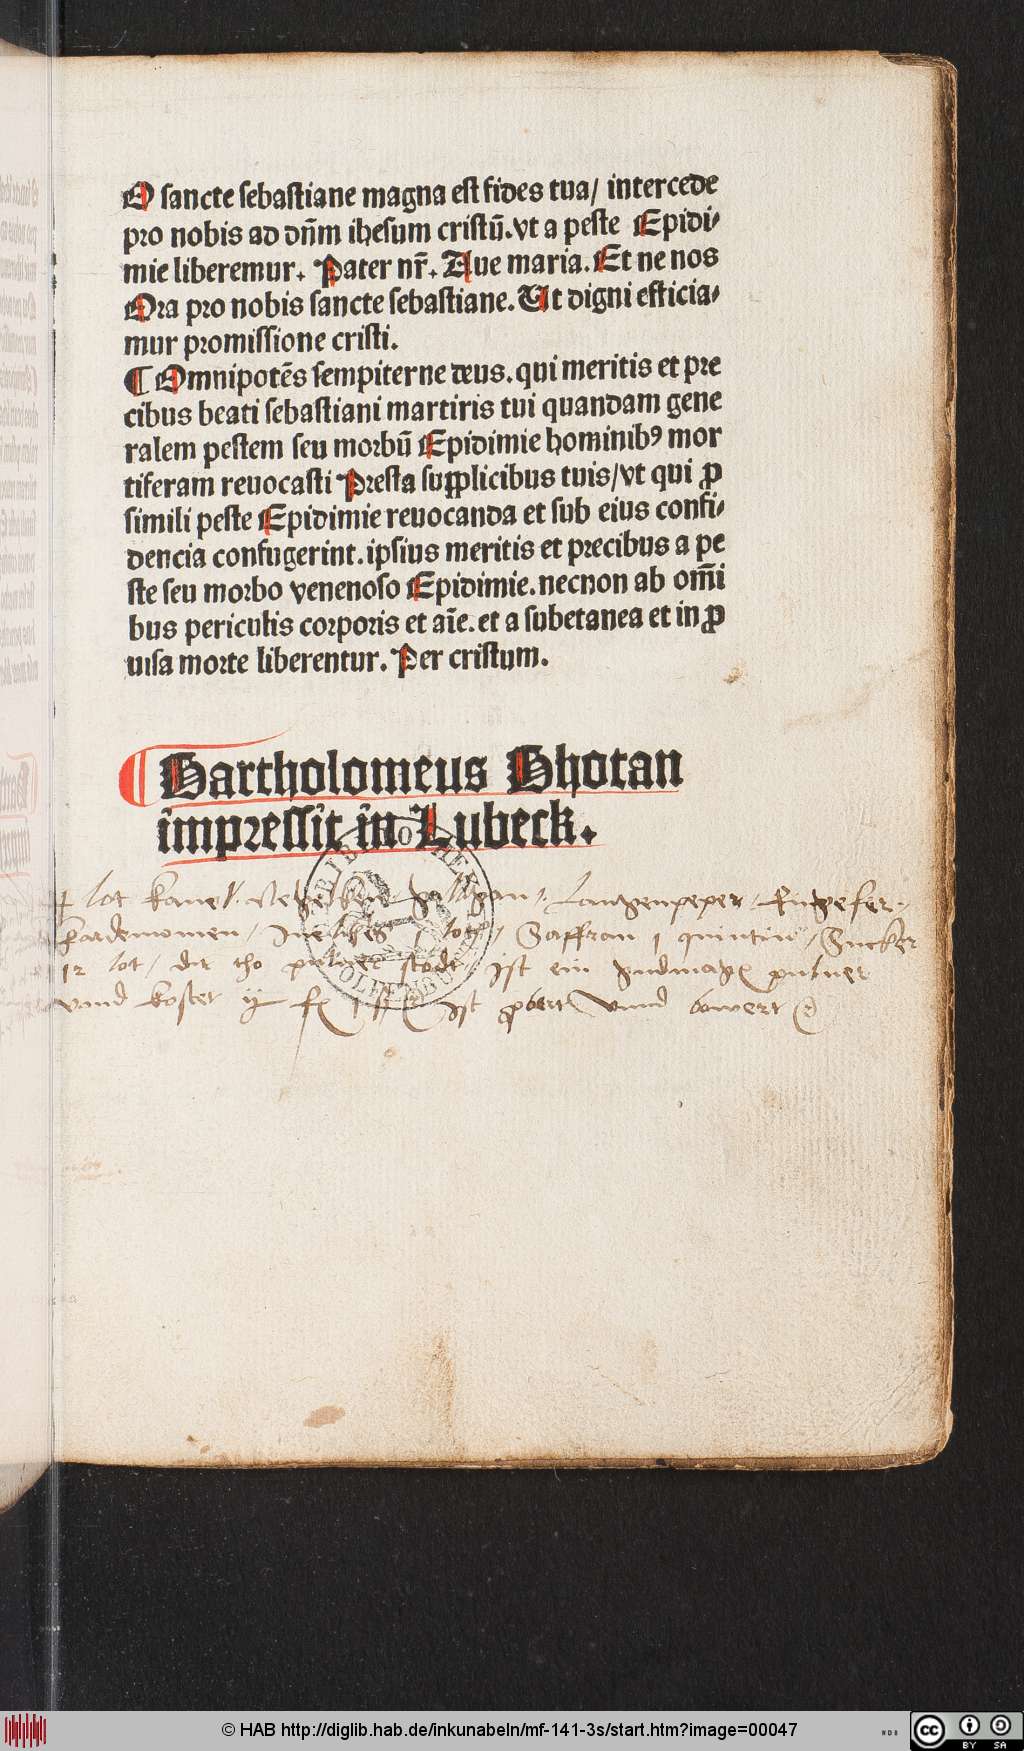 O sancte sebastiane magna est fides tua/ intercede
pro nobis ad dn̄m ihesum cristū.vt a peste Epidi-
mie liberemur. Pater nr̄. Aue maria. Et ne nos
Ora pro nobis sancte sebastiane. Ut digni efficia-
mur promissione cristi.
¶ Omnipotēs sempiterne deus. qui meritis et pre
cibus beati sebastiani martiris tui quandam gene
ralem pestem seu morbū Epidimie hominibꝰ mor
tiferam reuocasti Presta supplicibus tuis/vt qui ꝓ
simili peste Epidimie reuocanda et sub eius confi-
dencia confugerint.ipsius meritis et precibus a pe
ste seu morbo venenoso Epidimie.necnon ab om̄i
bus periculis corporis et aīe.et a subetanea et in ꝓ
uisa morte liberentur. Per cristum.
¶ Bartholomeus Ghotan
impressit in Lubeck.
lot kanel. Langenpeper/ Engefer.
Kardemomen/ 1 lot/ Saffran 1 quintin/ Sucker
12 lot/ dit tho puluer stodt/ ist ein puluer
vnnd kostet ist vnnd
BIBLIOTHEK
WOLFENBÜTTEL
© HAB http://diglib.hab.de/inkunabeln/mf-141-3s/start.htm?image=00047
WDB
cc BY SA